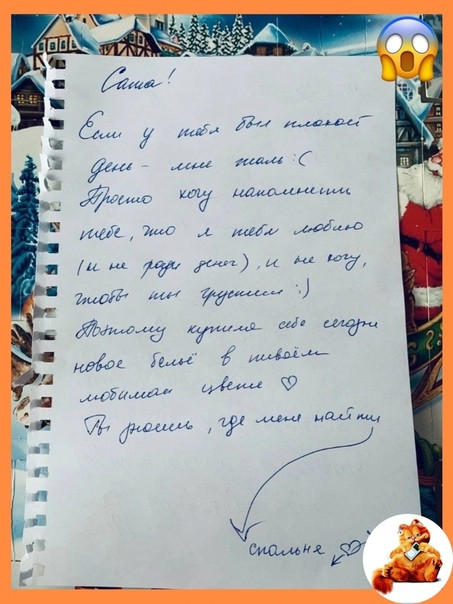 Саша!
Если у тебя был плохой
день - мне жаль :(
Просто хочу напомнить
тебе, что я тебя люблю
(и не ради денег), и не хочу,
чтобы ты грустил :)
Поэтому купила себе сегодня
новое бельё в твоём
любимом цвете ♡
Ты знаешь, где меня найти
спальня ♡